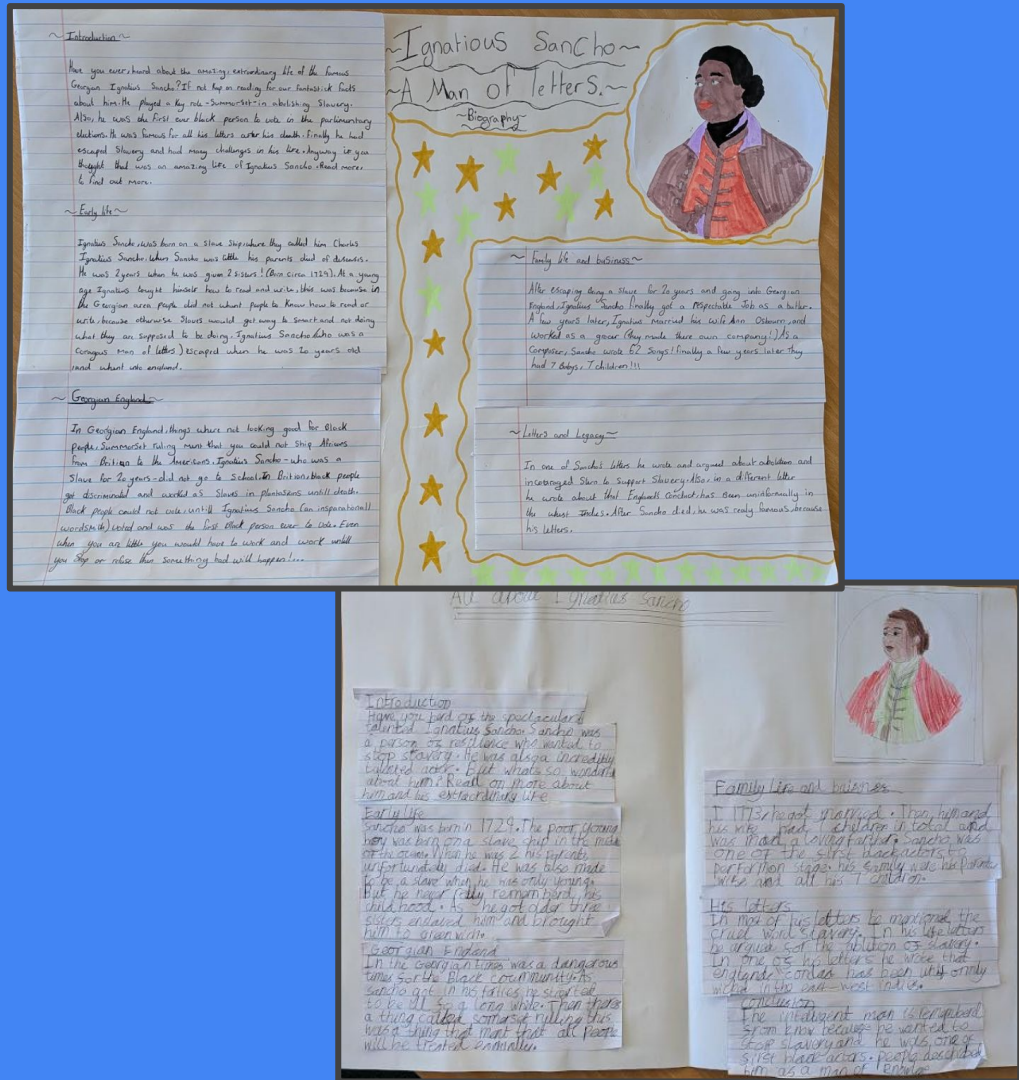 ~ Introduction ~
Have you ever, heard about the amazing, extraordinary life of the famous
Georgian Ignatius Sancho? If not keep on reading for our fantastick facts
about him. He played a key role - Summorset - in abolishing Slavery.
Also, he was the first ever black person to vote in the parlimentary
elections. He was famous for all his letters after his death. Finally he had
escaped Slavery and had many challenges in his life. Anyway if you
thought that was an amazing life of Ignatius Sancho. Read more,
to find out more.
~ Early life ~
Ignatius Sancho, was born on a slave ship, where they called him Charles
Ignatius Sancho. When Sancho was little his parents died of diseases.
He was 2 years when he was given 2 sisters! (Born circa 1729). At a young
age Ignatius taught himself how to read and write, this was because in
the Georgian area people did not whant people to know how to read or
write, because otherwise Slaves would get way to smart and not doing
what they are supposed to be doing. Ignatius Sancho (who was a
couragus man of letters) escaped when he was 20 years old
and whent into england.
~ Georgian England ~
In Georgian England, things where not looking good for Black
people. Summorset ruling ment that you could not ship Africans
from British to the Americans. Ignatius Sancho - who was a
slave for 20 years - did not go to School. In Britian, black people
got discriminated and worked as Slaves in plantasions untill death.
Black people could not vote, untill Ignatius Sancho (an insparational
wordsmith) voted and was the first Black person ever to vote. Even
when you are little you would have to work and work untill
you stop or refuse then something bad will happen!...
~ Ignatious Sancho ~
~ A Man of letters. ~
~ Biography ~
~ Family life and business ~
After escaping being a slave for 20 years and going into Georgian
England, Ignatius Sancho finally got a respectable Job as a butler.
A few years later, Ignatius married his wife Ann Osbourn, and
worked as a grocer (they made there own company!) As a
Composer, Sancho wrote 62 Songs! finally a few years later they
had 7 Babys, 7 children!!!
~ Letters and Legacy ~
In one of Sancho's letters he wrote and argued about abolition and
incouraged to Support Slavery. Also, in a different letter
he wrote about that England's Conduct, has been uninformally in
the whest Indies. After Sancho died, he was realy famous, because
his letters.
All about Ignatius Sancho
Introduction
Have you herd of the spectacular &
talented Ignatius Sancho. Sancho was
a person of resilience who wanted to
stop slavery. He was also a incredibly
talented actor. But whats so wonderful
about him? Read on more about
him and his extraordinary life
Early life
Sancho was born in 1729. The poor, young
boy was born on a slave ship in the
of the ocean. When he was 2 his parents
unfortunately died. He was also made
to be a slave when he was only young.
But he never really rememberd his
child hood. As he got older three
sisters enslaved him and brought
him to
Georgian England
In the Georgian times was a dangerous
times for the Black community. As
Sancho got in his forties he started
to be ill for a long while. Then there
a thing called somerset rulling this
was a thing that ment that all people
will be treated
Family Life and
I 1773, he got married. Then, him and
his wife had children in total and
was a loving farther. Sancho was
one of the first black actors to
perform on stage. his family were his
wife and all his 7 children.
His letters
In most of his letters he mentioned the
cruel word slavery. In his letters
he argued for the ablition of slavery.
In one of his letters he wrote that
englands has been
in the east - west indies.
Conclusion
The intelligent man is
from know because he wanted to
stop slavery and he was one of
first black actors. people
him as a man of